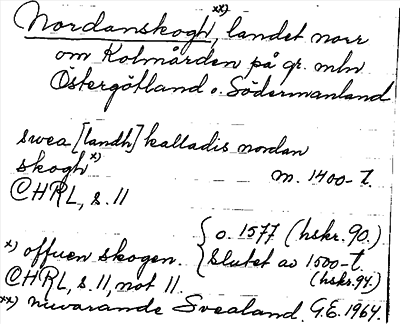 Nordanskogh xx), landet norr
om Kolmården på gr. mln
Östergötland o. Södermanland
swea [landh] kalladis nordan
skogh x)
m. 1400-t.
CHRL, s. 11
x) offuen skogen. { o. 1577 (hskr. 90.)
{ slutet av 1500-t.
(hskr. 94.)
CHRL, s. 11, not 11.
xx) nuvarande Svealand. G.E. 1964.